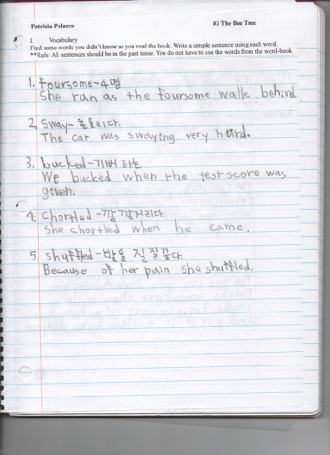 Patricia Polacco #3 The Bee Tree
1. Vocabulary
Find some words you didn't know as you read the book. Write a simple sentence using each word.
**Rule: All sentences should be in the past tense. You do not have to use the words from the word-book
1. foursome-4명
She ran as the foursome walk behind
2. Sway-흔들리다.
The car was swaying very hard.
3. bucked-기뻐하는
We bucked when the test score was
given.
4. Chortled-깔깔거리다.
She chortled when he came.
5. shuffled-발을 질질끌다.
Because of her pain she shuffled.